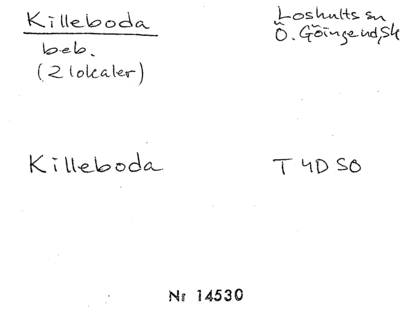 Killeboda
beb.
(2 lokaler)
Loshults sn
Ö. Göinge hd, Sk
Killeboda
T 4D SO
Nr 14530